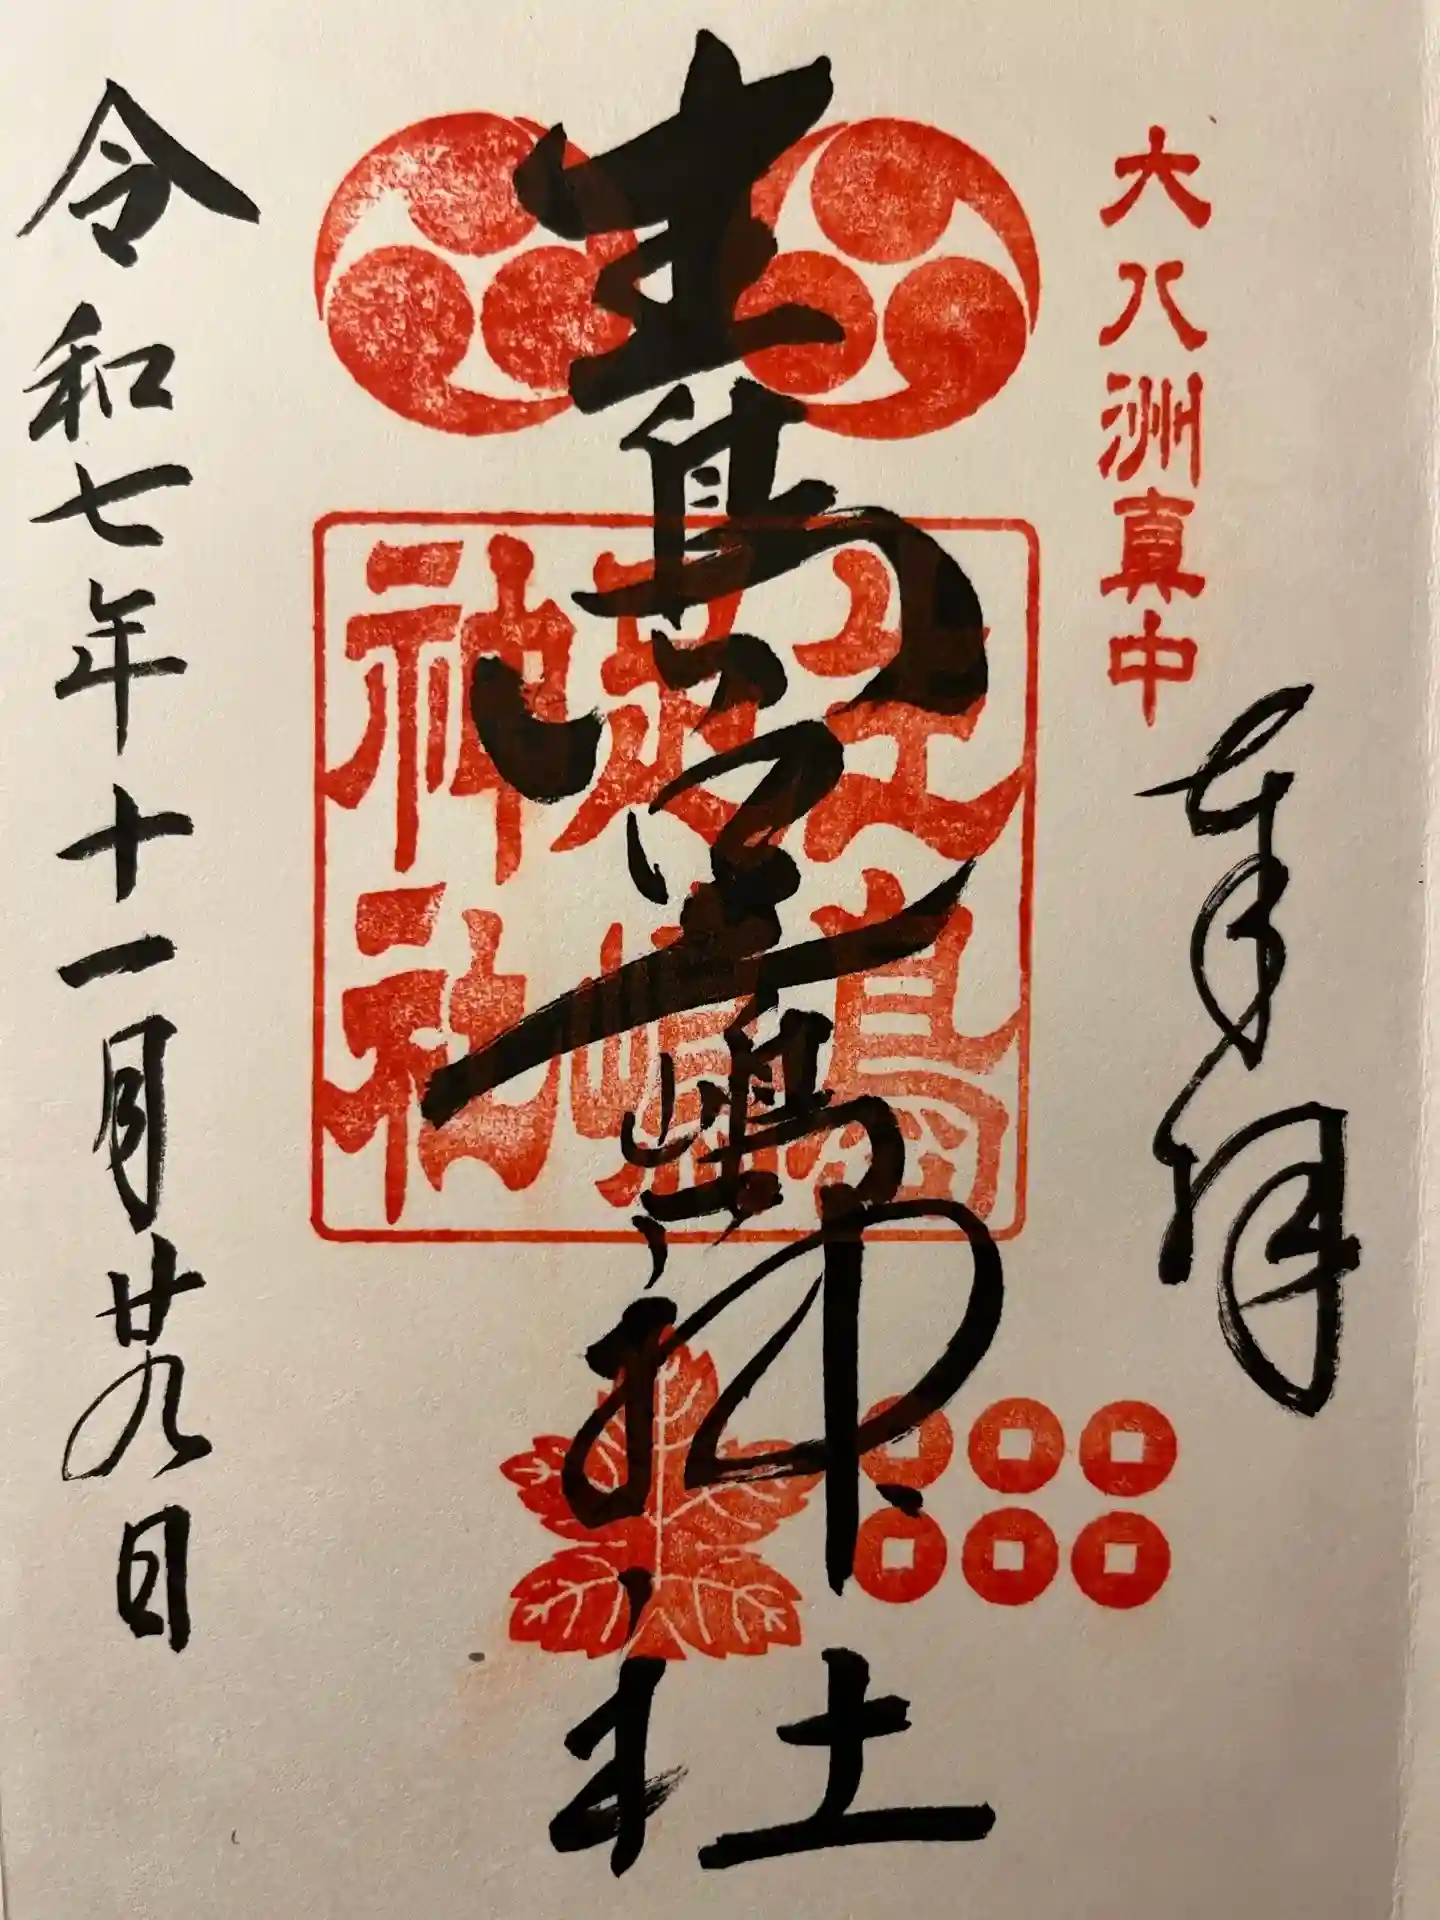 大八洲真中
奉拝
生島足島神社
生島足島神社
令和七年十一月廿九日